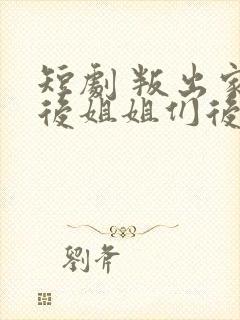 短劇 叛出家
後姐姐们後
劉斧